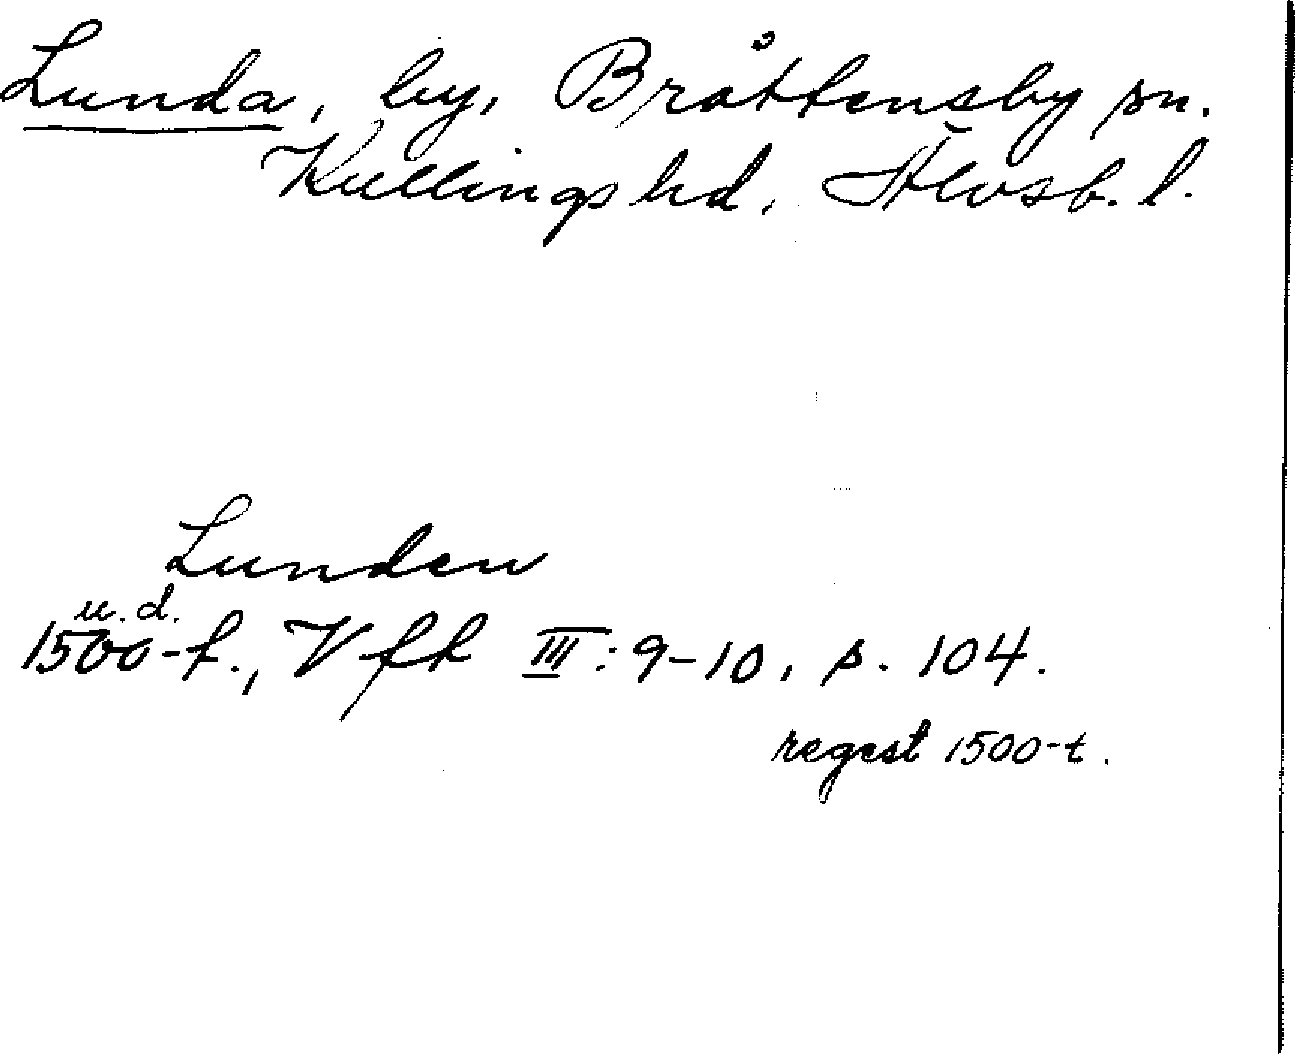 Lunda, by, Bråttensby sn.
Kullings hd, Älvsb. l.
Lunden
u. d.
1500-t., Vft III: 9-10, s. 104.
regest 1500-t.